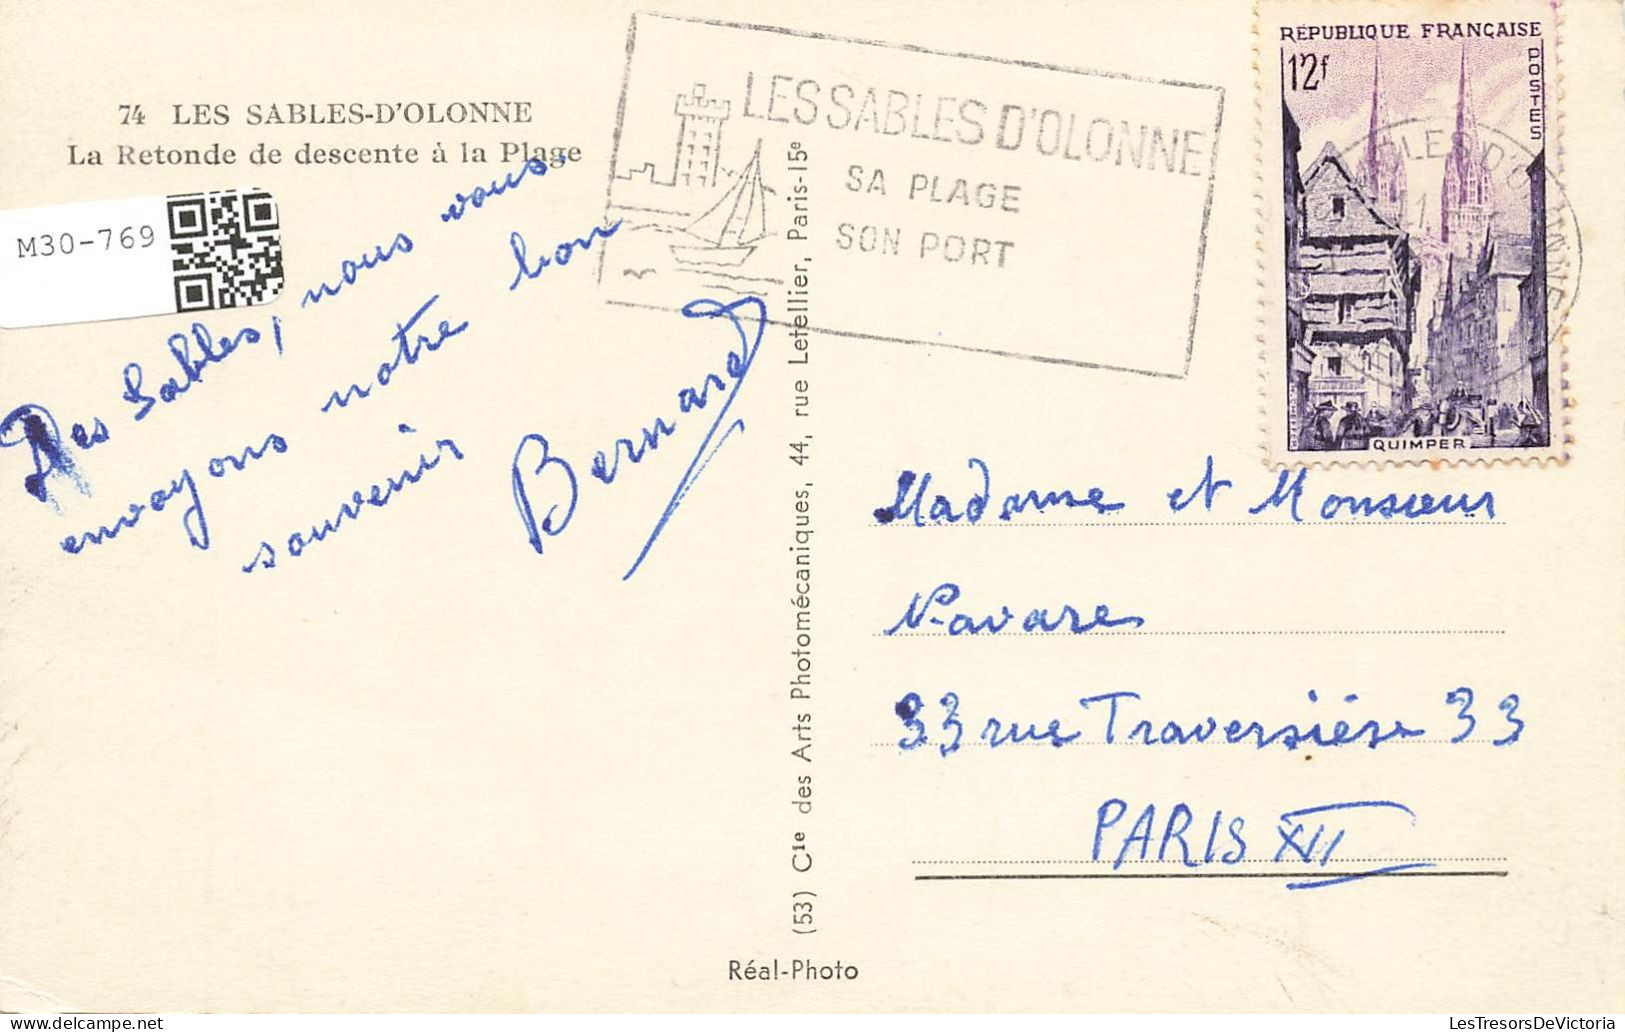 74 LES SABLES-D'OLONNE
La Retonde de descente à la Plage
M30-769
Des Sables, nous vous
envoyons notre bon
souvenir
Bernard
(53) Cie des Arts Photomécaniques, 44, rue Letellier, Paris-15e
Réal-Photo
LES SABLES D'OLONNE
SA PLAGE
SON PORT
RÉPUBLIQUE FRANÇAISE
12f
POSTES
QUIMPER
Madame et Monsieur
Navare
33 rue Traversière 33
PARIS XII
LesTresorsDeVictoria